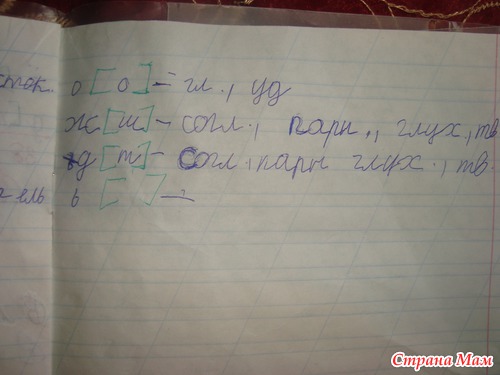 о [о] – гл., уд
ж [ш] – согл., парн., глух, тв
д [т] – согл, парн глух., тв.
ь [ ] –
Страна Мам